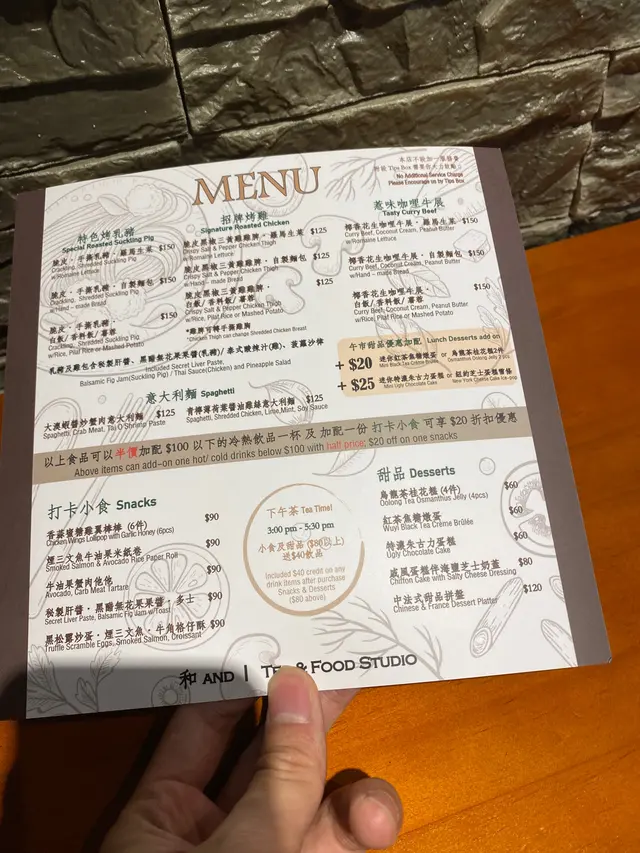 MENU
本店不設加一服務費
No Additional Service Charge
Please Encourage us by Tips Box
特色烤乳豬
Special Roasted Suckling Pig
脆皮・手撕乳豬・羅馬生菜 $150
Crackling, Shredded Suckling Pig
w/Romaine Lettuce
脆皮・手撕乳豬・自製麵包 $150
Crackling, Shredded Suckling Pig
w/Hand – made Bread
脆皮・手撕乳豬・
白飯/香料飯/薯蓉 $150
Crackling, Shredded Suckling Pig
w/Rice, Pilaf Rice or Mashed Potato
招牌烤雞
Signature Roasted Chicken
脆皮黑椒三黃雞雞脾・羅馬生菜 $125
Crispy Salt & Pepper Chicken Thigh
w/Romaine Lettuce
脆皮黑椒三黃雞雞脾・自製麵包 $125
Crispy Salt & Pepper Chicken Thigh
w/Hand – made Bread
脆皮黑椒三黃雞雞脾・
白飯/香料飯/薯蓉 $125
Crispy Salt & Pepper Chicken Thigh
w/Rice, Pilaf Rice or Mashed Potato
*雞脾可轉手撕雞胸
*Chicken Thigh can change Shredded Chicken Breast
惹味咖哩牛展
Tasty Curry Beef
椰香花生咖哩牛展・羅馬生菜 $150
Curry Beef, Coconut Cream, Peanut Butter
w/Romaine Lettuce
椰香花生咖哩牛展・自製麵包 $150
Curry Beef, Coconut Cream, Peanut Butter
w/Hand – made Bread
椰香花生咖哩牛展・
白飯/香料飯/薯蓉 $150
Curry Beef, Coconut Cream, Peanut Butter
w/Rice, Pilaf Rice or Mashed Potato
乳豬及雞包含秘製肝醬、黑醋無花果果醬(乳豬)/泰式酸辣汁(雞)、菠蘿沙律
Included Secret Liver Paste,
Balsamic Fig Jam(Suckling Pig) / Thai Sauce(Chicken) and Pineapple Salad
午市甜品優惠加配 Lunch Desserts add on
+ $20 迷你紅茶焦糖燉蛋 or 烏龍茶桂花糕2件
Mini Black Tea Crème Brûlée Osmanthus Oolong Jelly 2 pcs
+ $25 迷你特濃朱古力蛋糕 or 紐約芝士蛋糕雪條
Mini Ugly Chocolate Cake New York Cheese Cake Ice-pop
意大利麵 Spaghetti
大澳蝦醬炒蟹肉意大利麵 $125
Spaghetti, Crab Meat, Tai O Shrimp Paste
青檸薄荷葉醬油雞絲意大利麵 $125
Spaghetti, Shredded Chicken, Lime,Mint, Soy Sauce
以上食品可以半價加配 $100 以下的冷熱飲品一杯 及 加配一份 打卡小食 可享 $20 折扣優惠
Above items can add–on one hot/ cold drinks below $100 with half price; $20 off on one snacks
打卡小食 Snacks
香蒜蜜糖雞翼棒棒 (6件) $90
Chicken Wings Lollipop with Garlic Honey (6pcs)
煙三文魚牛油果米紙卷 $90
Smoked Salmon & Avocado Rice Paper Roll
牛油果蟹肉他他 $90
Avocado, Carb Meat Tartare
秘製肝醬・黑醋無花果果醬・多士 $90
Secret Liver Paste, Balsamic Fig Jam w/Toast
黑松露炒蛋・煙三文魚・牛角格仔酥 $90
Truffle Scramble Eggs, Smoked Salmon, Croissant
下午茶 Tea Time!
3:00 pm - 5:30 pm
小食及甜品 ($80以上)
送$40飲品
Included $40 credit on any
drink items after purchase
Snacks & Desserts
($80 above)
甜品 Desserts
烏龍茶桂花糕 (4件) $60
Oolong Tea Osmanthus Jelly (4pcs)
紅茶焦糖燉蛋 $60
Wuyi Black Tea Crème Brûlée
特濃朱古力蛋糕 $60
Ugly Chocolate Cake
戚風蛋糕伴海鹽芝士奶蓋 $80
Chiffon Cake with Salty Cheese Dressing
中法式甜品拼盤 $120
Chinese & France Dessert Platter
和 AND | & FOOD STUDIO